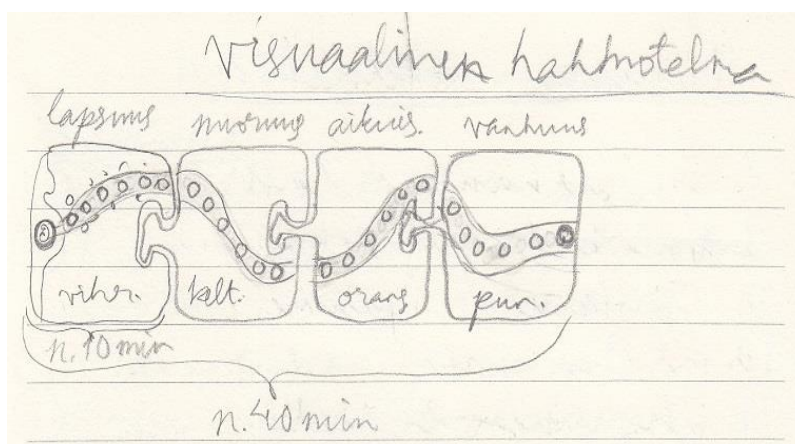 visuaalinen hahmotelma
lapsuus nuoruus aikuis. vanhuus
viher. kelt. orans pun.
n. 10 min
n. 40 min